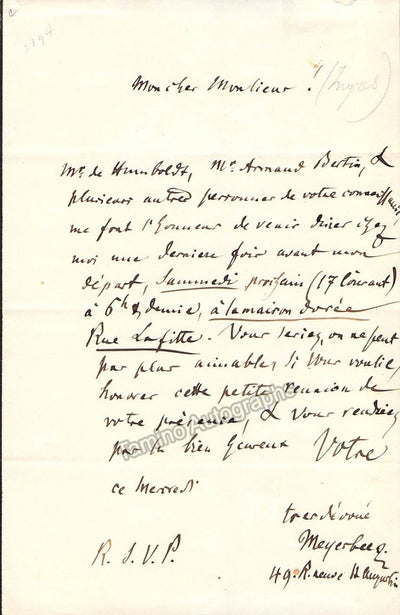 2194
Mon cher Monsieur! (Ingres)
Mr. de Humboldt, Mr. Armand Bertin, &
plusieurs autres personnes de votre connaissance
me font l'honneur de venir diner chez
moi une derniere fois avant mon
départ, Sammedi prochain (17 Courant)
à 6h & demie, à la maison dorée
Rue Lafitte. Vous seriez, on ne peut
pas plus aimable, si vous vouliez
honorer cette petite reunion de
votre presence, & vous rendriez
par là bien heureux Votre
Tamino Autographs
ce Mercredi
tres dévoué
Meyerbeer
R. S. V. P.
49. R. neuve St Augustin